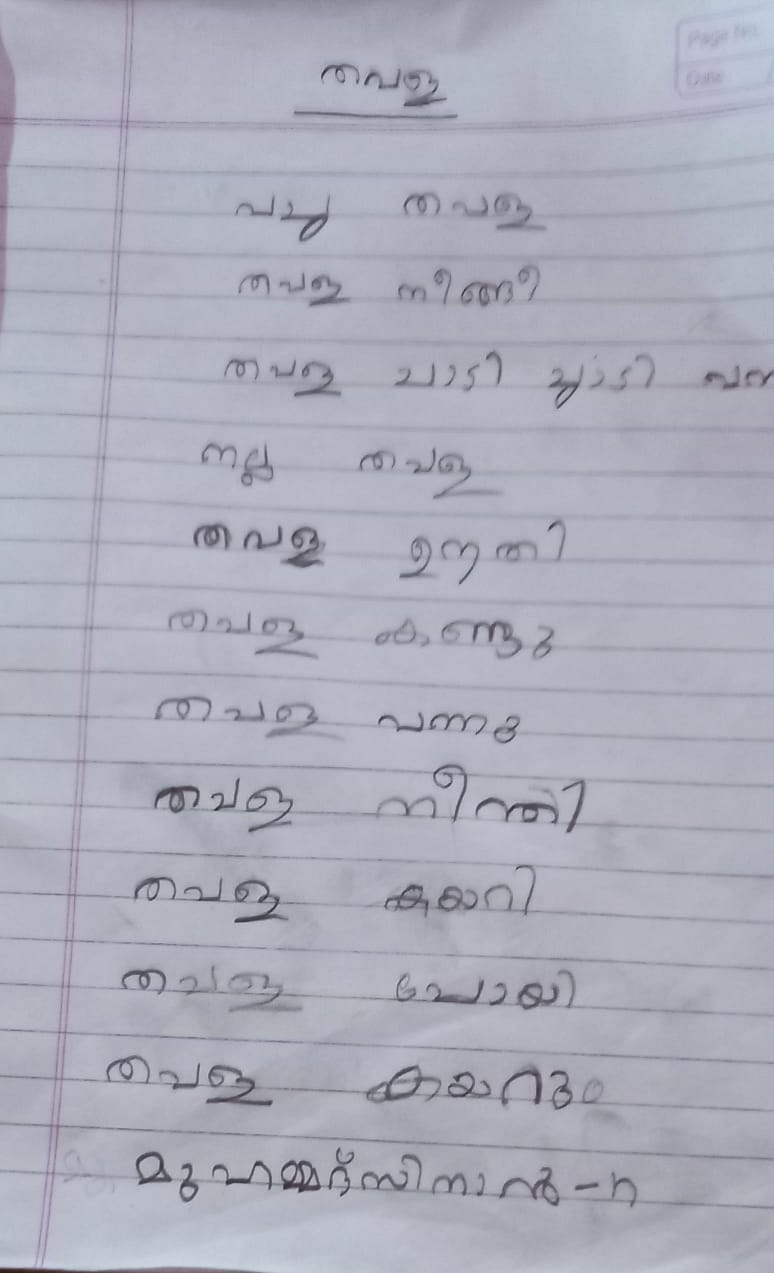 Page No.
Date
തവള
പച്ച തവള
തവള നീങ്ങി
തവള ചാടി ചാടി
നല്ല തവള
തവള ഉന്തി
തവള കണ്ടു
തവള വന്നു
തവള നീന്തി
തവള കയറി
തവള പോയി
തവള കയറും
മുഹമ്മദ് സിനാൻ - n